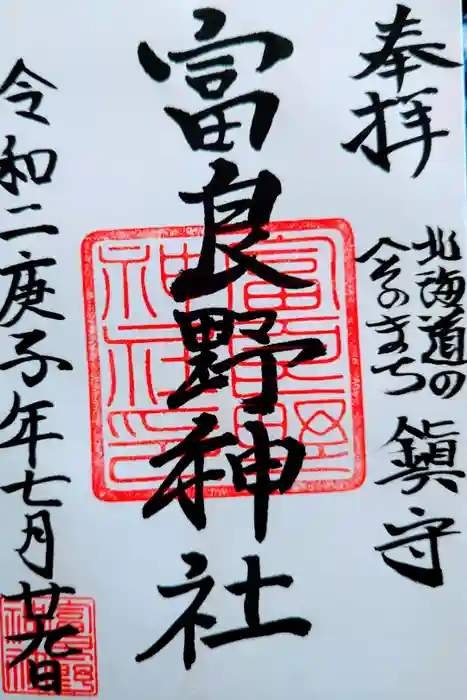 奉拝
北海道の
へそのまち
鎮守
富良野神社
富良野
神社印
令和二庚子年七月廿日